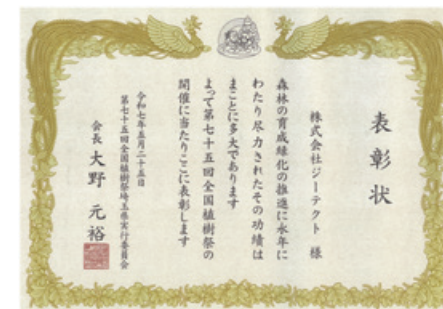 表彰状
株式会社ジーテクト 様
森林の育成緑化の推進に永年に
わたり尽力されたその功績は
まことに多大であります
よって第七十五回全国植樹祭の
開催に当たりここに表彰します
令和七年五月二十五日
第七十五回全国植樹祭埼玉県実行委員会
会長 大野 元裕